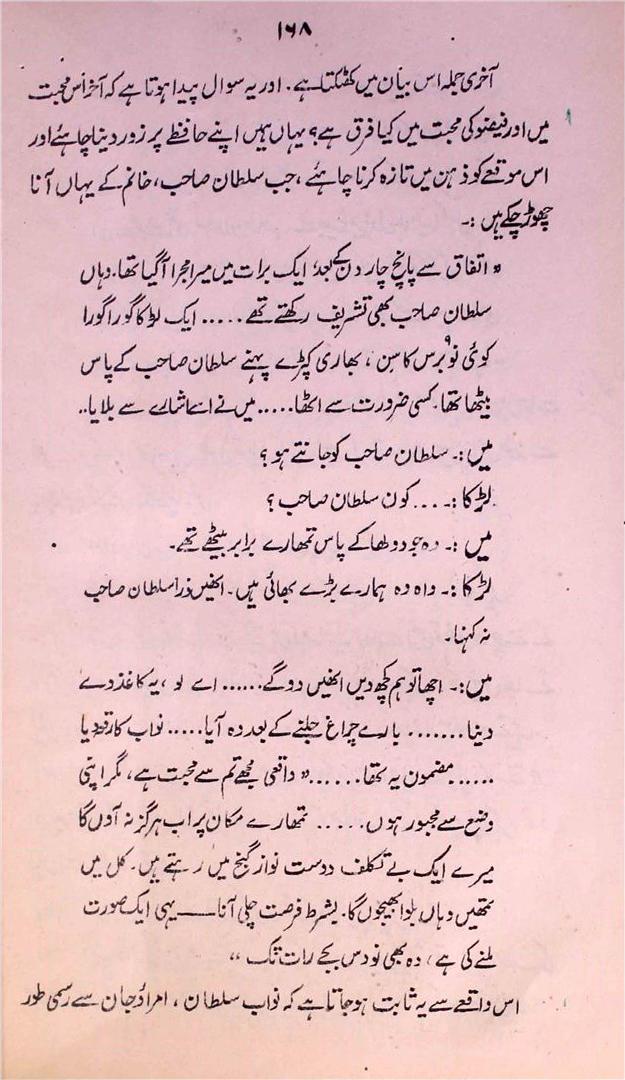 ۱۶۸
آخری جملہ اس بیان میں کھٹکتا ہے۔ اور یہ سوال پیدا ہوتا ہے کہ آخر اس محبت
میں اور فیضو کی محبت میں کیا فرق ہے؟ یہاں ہمیں اپنے حافظے پر زور دینا چاہئے اور
اس موقعے کو ذہن میں تازہ کرنا چاہئے، جب سلطان صاحب، خانم کے یہاں آنا
چھوڑ چکے ہیں :۔
" اتفاق سے پانچ چار دن کے بعد ایک برات میں میرا مجرا آگیا تھا۔ وہاں
سلطان صاحب بھی تشریف رکھتے تھے ..... ایک لڑکا گورا گورا
کوئی نو برس کا سن، بھاری کپڑے پہنے سلطان صاحب کے پاس
بیٹھا تھا۔ کسی ضرورت سے اٹھا..... میں نے اسے اشارے سے بلایا..
میں :۔ سلطان صاحب کو جانتے ہو ؟
لڑکا :۔ ... کون سلطان صاحب ؟
میں :۔ وہ جو دولھا کے پاس تمھارے برابر بیٹھے تھے۔
لڑکا :۔ واہ وہ ہمارے بڑے بھائی ہیں۔ انھیں ذرا سلطان صاحب
نہ کہنا۔
میں :۔ اچھا تو ہم کچھ دیں انھیں دوگے...... اے لو، یہ کاغذ دے
دینا....... بارے چراغ جلنے کے بعد وہ آیا..... نواب کا رقعہ دیا
..... مضمون یہ تھا......" واقعی مجھے تم سے محبت ہے، مگر اپنی
وضع سے مجبور ہوں ..... تمھارے مکان پر اب ہرگز نہ آوں گا
میرے ایک بے تکلف دوست نواز گنج میں رہتے ہیں۔ کل میں
تمھیں وہاں بلوا بھیجوں گا۔ بشرط فرصت چلی آنا—— یہی ایک صورت
ملنے کی ہے، وہ بھی نو دس بجے رات تک "
اس واقعے سے یہ ثابت ہوجاتا ہے کہ نواب سلطان، امراؤ جان سے رسمی طور